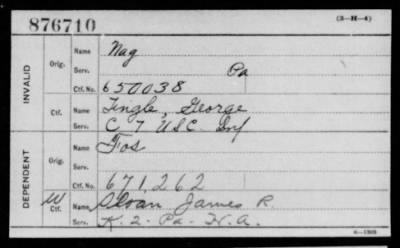 876710 (3-H-4)
INVALID
Orig.
Name Nag
Serv. Pa
Ctf. No. 650038
Ctf.
Name Tingle, George
Serv. C 7 USC Inf
DEPENDENT
Orig.
Name Fos
Serv.
Ctf. No. 671,262
W Ctf.
Name Sloan James R.
Serv. K. 2- Pa- H.A.